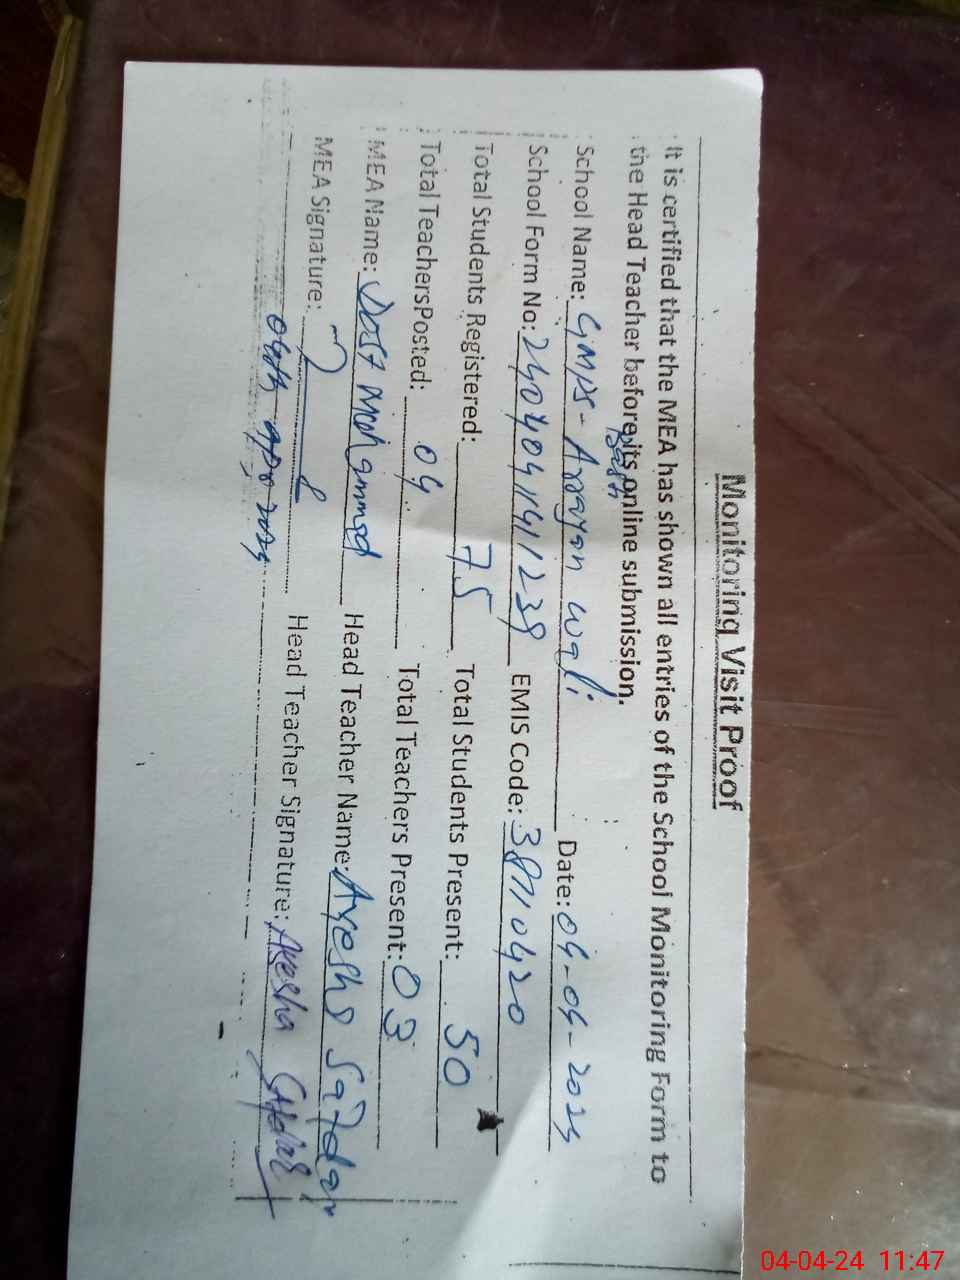 Monitoring Visit Proof
It is certified that the MEA has shown all entries of the School Monitoring Form to
the Head Teacher before its online submission.
School Name: GMPS- Arayan wali Date: 04-04-2024
School Form No: 2404041411239 EMIS Code: 38110420
Total Students Registered: 75 Total Students Present: 50
Total TeachersPosted: 04 Total Teachers Present: 03
MEA Name: Dost Mohammad Head Teacher Name: Ayesha Safdar
MEA Signature: Head Teacher Signature: Ayesha Safdar
04-04-24 11:47